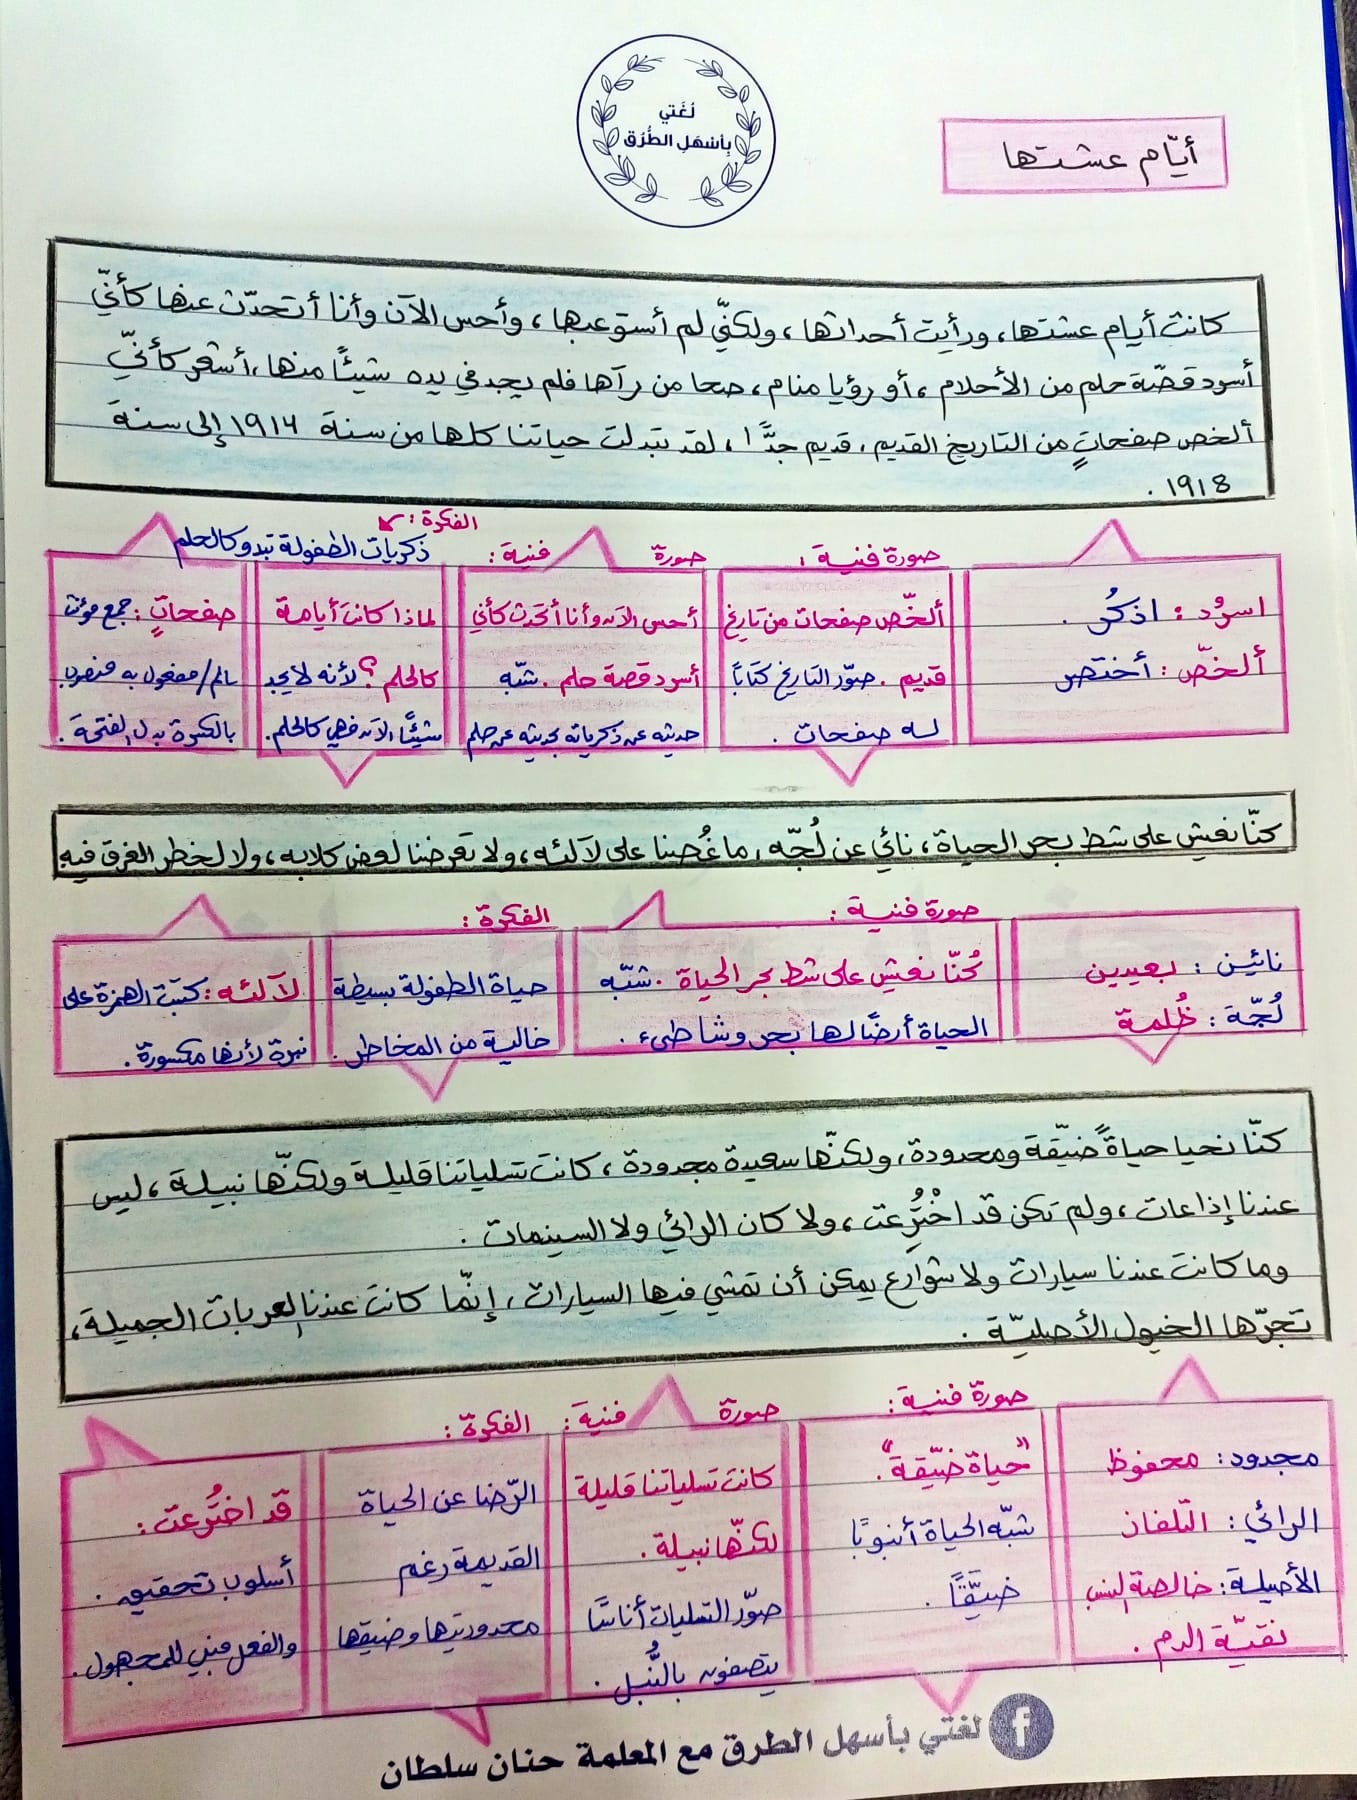 لُغَتي
بِأسْهَلِ الطُّرُق
أيّام عشتها
كانت أيام عشتها، ورأيت أحداثها، ولكنّي لم أستوعبها، وأحس الآن وأنا أتحدّث عنها كأنّي
أسرد قصّة حلم من الأحلام، أو رؤيا منام، صحا من رآها فلم يجد في يده شيئًا منها، أشعر كأنّي
ألخص صفحاتٍ من التاريخ القديم، قديم جدًّا، لقد تبدلت حياتنا كلها من سنة ١٩١٦ إلى سنة
١٩١٨ .
اسرُد : اذكُر .
ألخّص : أختصر
صورة فنية :
ألخّص صفحات من تاريخ
قديم . صوّر التاريخ كتابًا
له صفحات .
صورة فنية :
أحس الآن وأنا أتحدث كأني
أسرد قصة حلم . شبّه
حديثه عن ذكرياته بحديثه عن حلم
الفكرة :
ذكريات الطفولة تبدو كالحلم
لماذا كانت أيامه
كالحلم ؟ لأنه لا يجد
شيئًا الآن فهي كالحلم .
صفحاتٍ : جمع مؤنث
سالم / مفعول به منصوب
بالكسرة بدل الفتحة .
كنّا نعيش على شط بحر الحياة، نائي عن لُجّه، ما غُصنا على لآلئه، ولا تعرضنا لعض كلابه، ولا لخطر الغرق فيه
نائين : بعيدين
لُجّة : ظُلمة
صورة فنية :
كُنّا نعيش على شط بحر الحياة . شبّه
الحياة أرضًا لها بحر وشاطىء .
الفكرة :
حياة الطفولة بسيطة
خالية من المخاطر .
لآلئه : كتبت الهمزة على
نبرة لأنها مكسورة .
كنّا نحيا حياةً ضيّقة ومحدودة، ولكنّها سعيدة مجدودة، كانت تسلياتنا قليلة ولكنّها نبيلة، ليس
عندنا إذاعات، ولم تكن قد اخْتُرِعت، ولا كان الرائي ولا السينمات .
وما كانت عندنا سيارات ولا شوارع يمكن أن تمشي فيها السيارات، إنّما كانت عندنا العربات الجميلة،
تجرّها الخيول الأصليّة .
مجدود : محفوظ
الرائي : التلفاز
الأصيلة : خالصة النسب
نقيّة الدم .
صورة فنية :
"حياة ضيّقة" .
شبّه الحياة أنبوبًا
ضيّقًا .
صورة فنية :
كانت تسلياتنا قليلة
لكنّها نبيلة .
صوّر التسليات أناسًا
يتصفون بالنُّبل .
الفكرة :
الرّضا عن الحياة
القديمة رغم
محدوديتها وضيقها
قد اختُرعت :
أسلوب تحقيق .
والفعل مبني للمجهول .
لغتي بأسهل الطرق مع المعلمة حنان سلطان